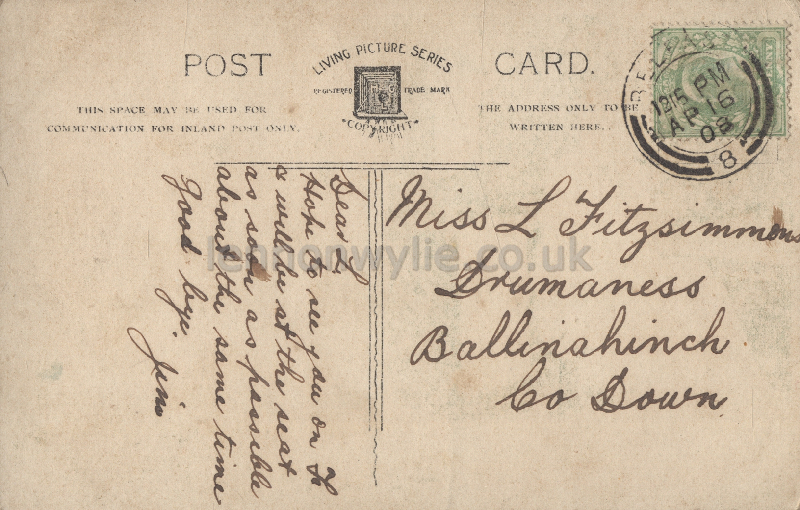 POST CARD.
LIVING PICTURE SERIES
REGISTERED TRADE MARK
COPYRIGHT
THIS SPACE MAY BE USED FOR
COMMUNICATION FOR INLAND POST ONLY.
THE ADDRESS ONLY TO BE
WRITTEN HERE.
BELFAST
1215 PM
AP 16
08
8
Dear L
Hope to see you on
& will be at the seat
as soon as possible
about the same time
Good bye.
Jim
Miss L Fitzsimmons
Drumaness
Ballinahinch
Co Down
lennonwylie.co.uk